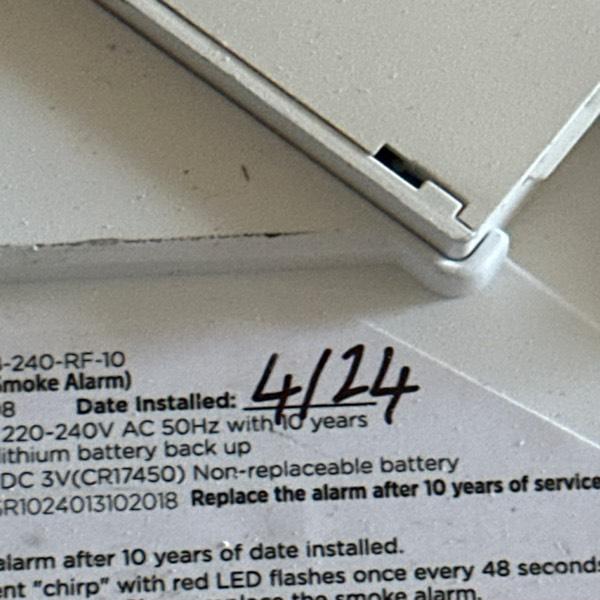 -240-RF-10
moke Alarm)
8 Date Installed: 4/24
220-240V AC 50Hz with 10 years
ithium battery back up
DC 3V(CR17450) Non-replaceable battery
R1024013102018 Replace the alarm after 10 years of service
alarm after 10 years of date installed.
ent "chirp" with red LED flashes once every 48 seconds
replace the smoke alarm.